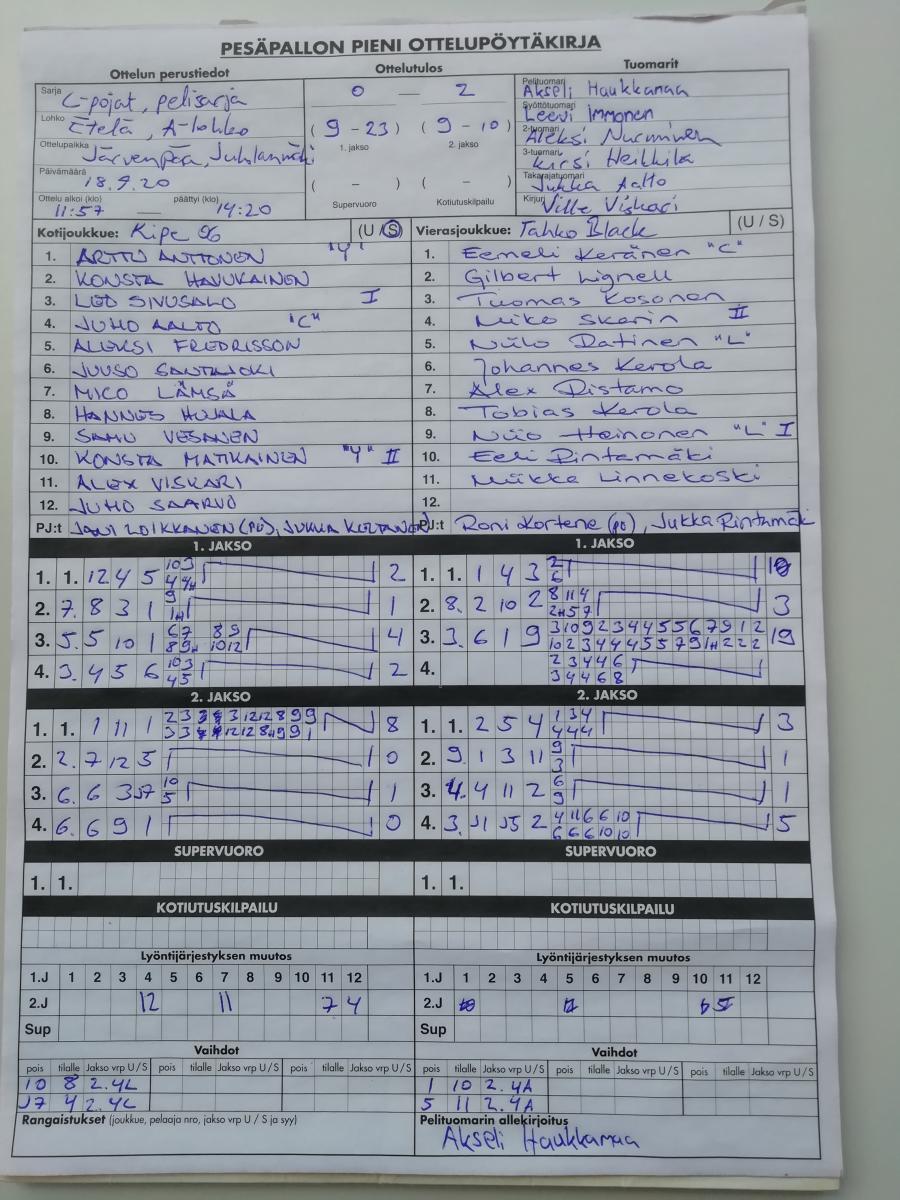 PESÄPALLON PIENI OTTELUPÖYTÄKIRJA
Ottelun perustiedot
Sarja C-pojat, pelisarja
Lohko Etelä, A-lohko
Ottelupaikka Järvenpää, Juhlanmäki
Päivämäärä 18.9.20
Ottelu alkoi (klo) 11:57 — päättyi (klo) 14:20
Ottelutulos
0 — 2
(9 - 23) (9 - 10)
1. jakso 2. jakso
( - ) ( - )
Supervuoro Kotiutuskilpailu
Tuomarit
Pelituomari Akseli Haukkamaa
Syöttötuomari Leevi Immonen
2-tuomari Aleksi Nurminen
3-tuomari Kirsi Heikkilä
Takarajatuomari Jukka Aalto
Kirjuri Ville Viskari
Kotijoukkue: Kipe 96 (U / S)
1. ARTTU ANTTONEN "Y"
2. KONSTA HAVUKAINEN
3. LEO SIVUSALO I
4. JUHO AALTO "C"
5. ALEKSI FREDRISSON
6. JUUSO SANTAJOKI
7. MICO LÄMSÄ
8. HANNES HUJALA
9. SAMU VESANEN
10. KONSTA MATIKAINEN "Y" II
11. ALEX VISKARI
12. JUHO SAARVO
PJ:t JANI LOIKKANEN (PJ), JUKKA
Vierasjoukkue: Tahko Black (U / S)
1. Eemeli Keränen "C"
2. Gilbert Lignell
3. Tuomas Kosonen
4. Miko Skarin II
5. Niilo Ratinen "L"
6. Johannes Kerola
7. Alex Ristamo
8. Tobias Kerola
9. Niio Heinonen "L" I
10. Eeli Rintamäki
11. Miikka Linnekoski
12.
PJ:t Roni Kortene (pj), Jukka Rintamäki
1. JAKSO
1. 1. 12 4 5 10 3 2
4 4H
2. 7. 8 3 1 9 1
1H
3. 5. 5 10 1 6 7 8 9 4
8 9H 10 12
4. 3. 4 5 6 10 3 2
4 5
1. JAKSO
1. 1. 1 4 3 2
6
2. 8. 2 10 2 8 11 4 3
2H 5 7
3. 3. 6 1 9 3 10 9 2 3 4 4 5 5 6 7 9 1 2 19
10 2 3 4 4 4 5 5 7 9 1H 2 2 2
4. 2 3 4 4 6
3 4 4 6 8
2. JAKSO
1. 1. 1 11 1 2 3 3 12 12 8 9 9 8
3 3 12 12 8H 9 9 1
2. 2. 7 12 5 0
3. 6. 6 3 J7 10 1
5
4. 6. 6 9 1 0
2. JAKSO
1. 1. 2 5 4 1 3 4 3
4 4 4
2. 9. 1 3 11 9 1
3
3. 4. 4 11 2 6 1
9
4. 3. J1 J5 2 4 11 6 6 10 5
6 6 6 10 10
SUPERVUORO
1. 1.
SUPERVUORO
1. 1.
KOTIUTUSKILPAILU
KOTIUTUSKILPAILU
Lyöntijärjestyksen muutos
1.J 1 2 3 4 5 6 7 8 9 10 11 12
2.J 12 11 7 4
Sup
Lyöntijärjestyksen muutos
1.J 1 2 3 4 5 6 7 8 9 10 11 12
2.J
Sup
Vaihdot
pois tilalle Jakso vrp U / S pois tilalle Jakso vrp U / S pois tilalle Jakso vrp U / S
10 8 2.4L
J7 4 2.4L
Vaihdot
pois tilalle Jakso vrp U / S pois tilalle Jakso vrp U / S pois tilalle Jakso vrp U / S
1 10 2.4A
5 11 2.4A
Rangaistukset (joukkue, pelaaja nro, jakso vrp U / S ja syy)
Pelituomarin allekirjoitus
Akseli Haukkamaa